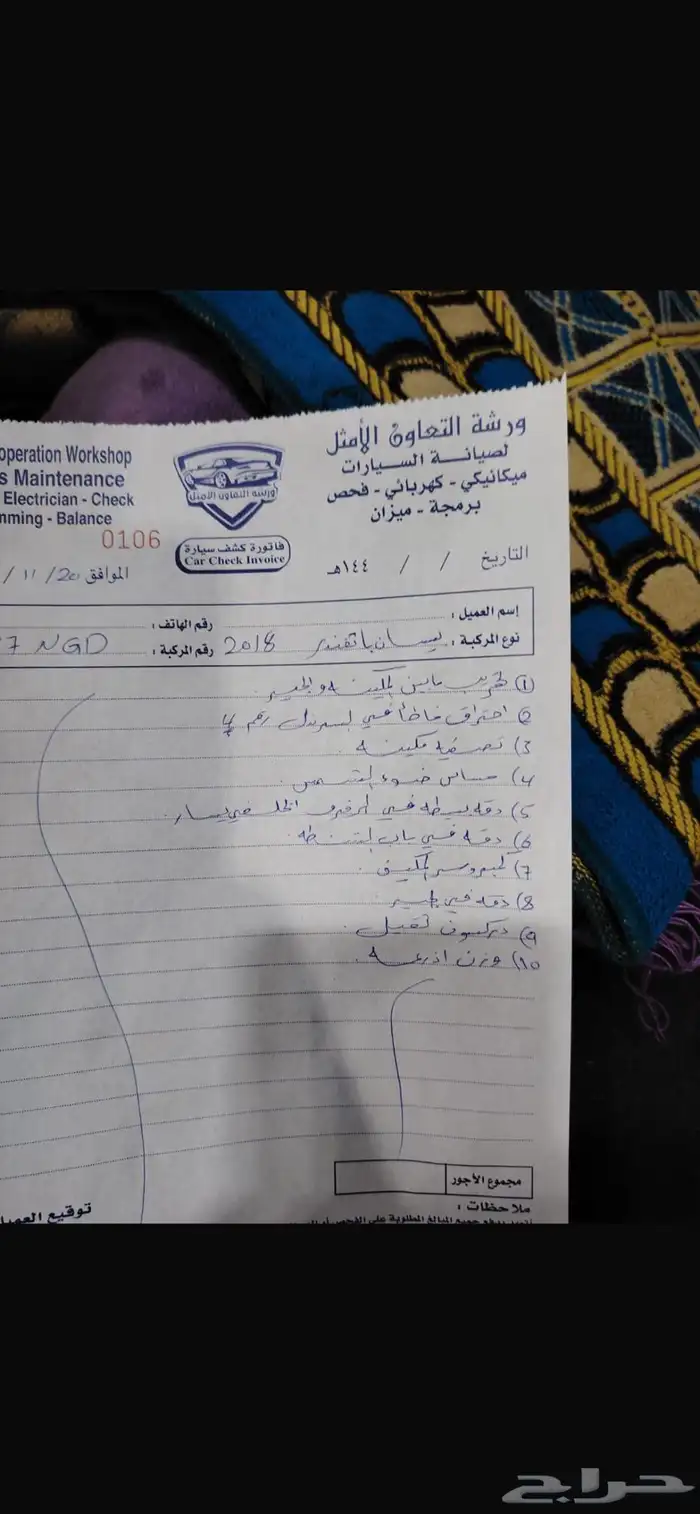 ورشة التعاون الأمثل
لصيانـة السـيارات
ميكانيكي - كهربائي - فحص
برمجة - ميزان
operation Workshop
s Maintenance
Electrician - Check
mming - Balance
0106
ورشة التعاون الامثل
فاتورة كشف سيارة
Car Check Invoice
التاريخ / / ١٤٤هـ
الموافق 20/ 11 /
إسم العميل :
رقم الهاتف :
نوع المركبة : نيسان باثفندر 2018
رقم المركبة : 7 NGD
1) تهريب مابين المكينه والجير
2) احتراق في سلندر رقم 4
3) تصفيه مكينه
4) حساس ضوء الشمس
5) دقه بسيطه في الرفرف الخلفي يسار
6) دقه في باب الشنطه
7) كمبروسر المكيف
8) دقه في
9) دركسون ثقيل
10) وزن اذرعه
مجموع الأجور
ملاحظات :
توقيع العميل